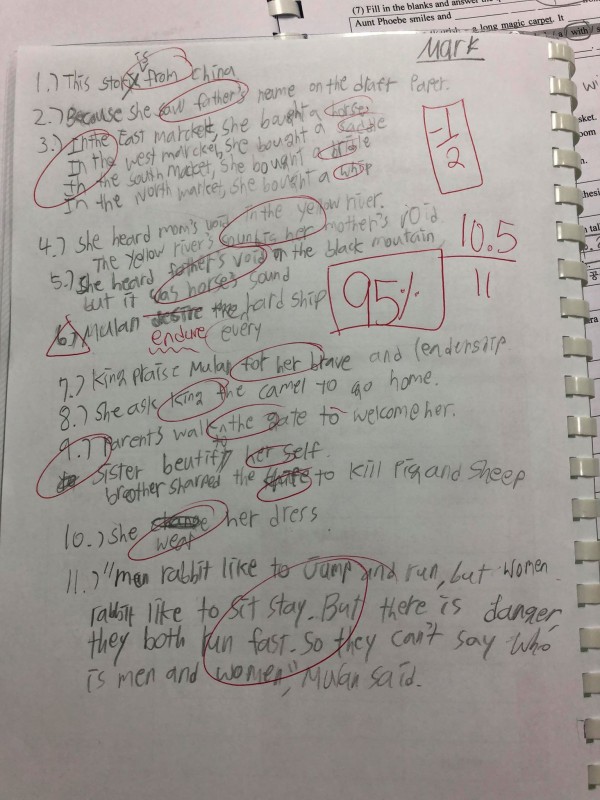 (7) Fill in the blanks and answer the
Aunt Phoebe smiles and
a long magic carpet. It
with
Mark
is
1.) This story from China
2.) Because she saw father's neme on the draft Paper.
3.) In the East marcket, she bought a horse
In the west marcket, she bought a saddle
In the south market, she bought a bridle
In the north market, she bought a whip
-1/2
4.) She heard mom's void in the yellow river.
The yellow river's sound is her mother's void.
5.) She heard father's void in the black moutain,
but it was horse's sound
10.5
11
95%
6.) Mulan desire the hard ship
endure every
7.) King Praise Mulan for her brave and leadership
8.) She ask king the camel to go home.
9.) Parents walk in the gate to welcome her.
to
Sister beutify her self.
brother sharped the knife to kill Pig and Sheep
10.) She her dress
wear
11.) "men rabbit like to Jump and run, but women
rabbit like to sit stay. But there is danger,
they both run fast. So they can't say who
is men and women," Mulan said.